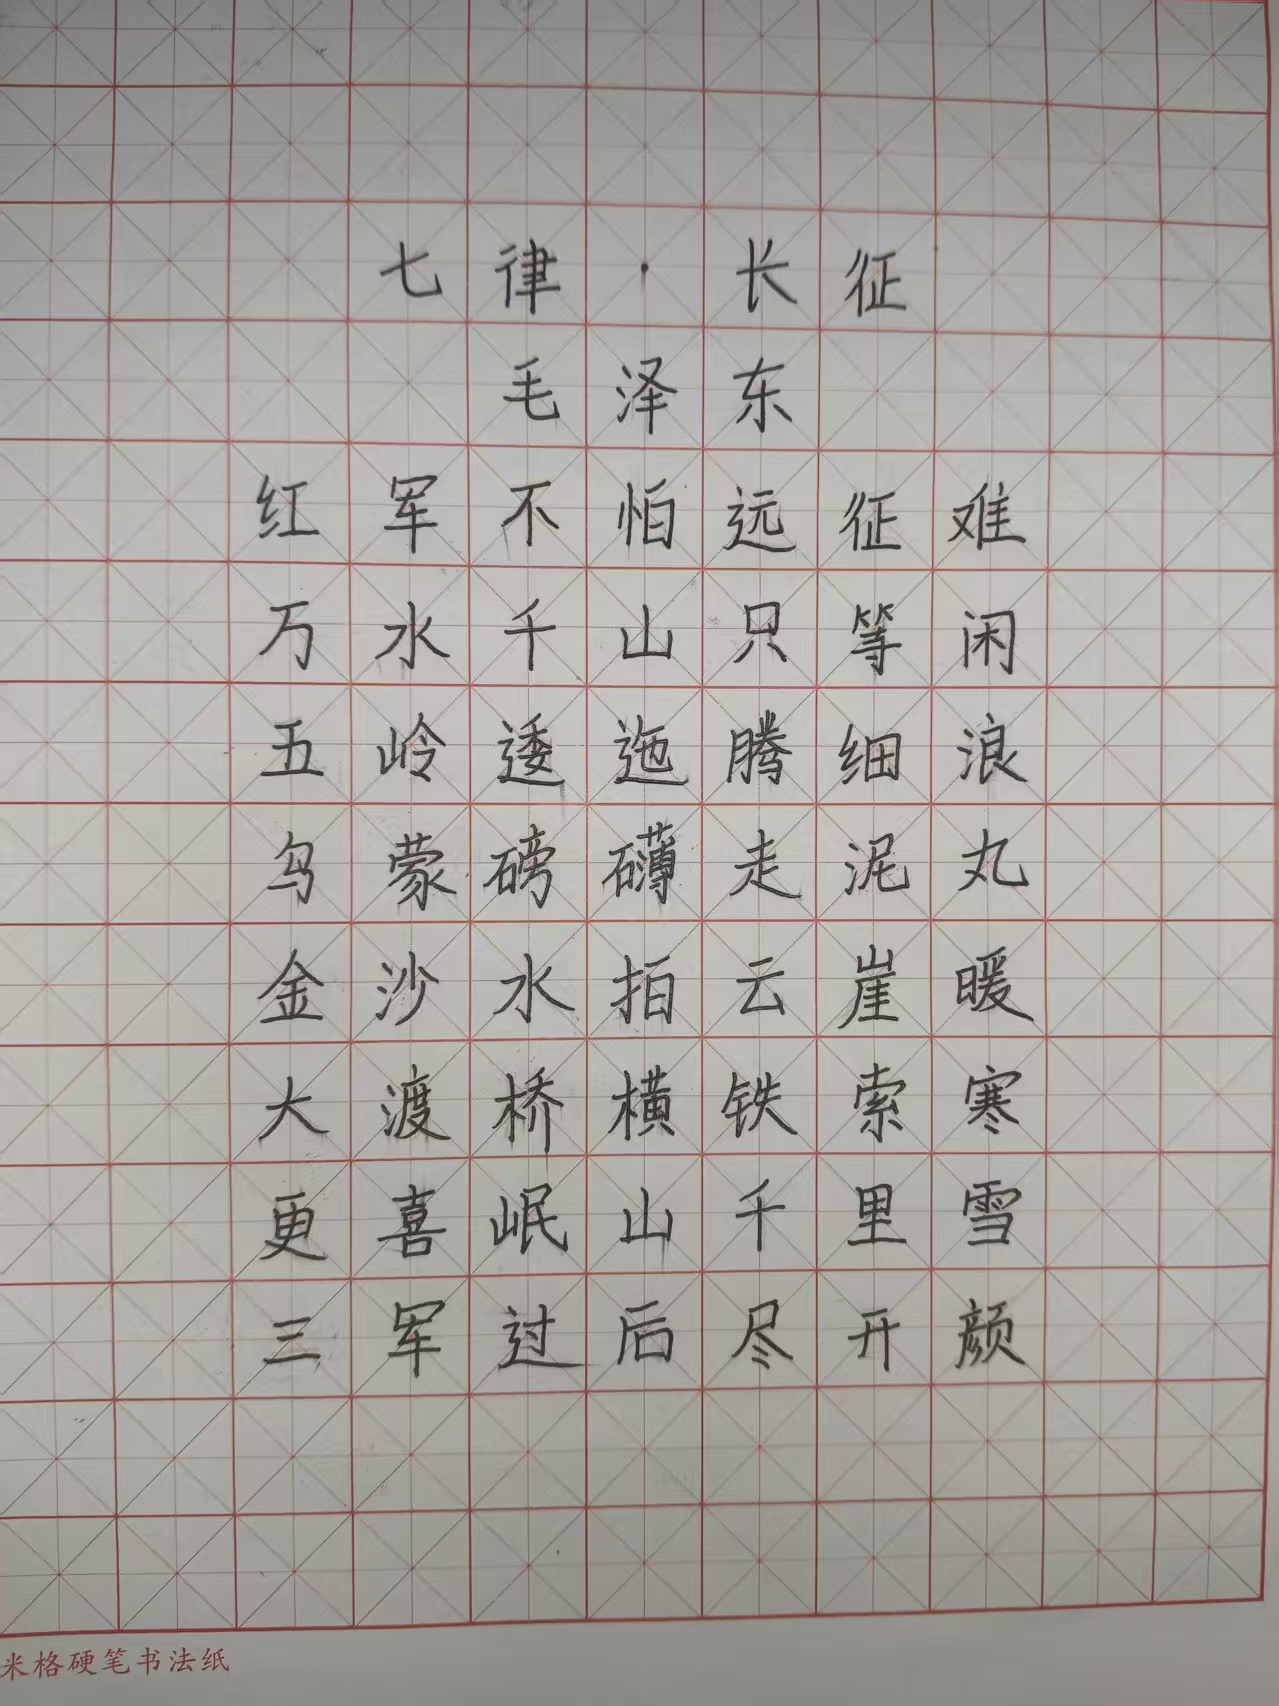 七律·长征
毛泽东
红军不怕远征难
万水千山只等闲
五岭逶迤腾细浪
乌蒙磅礴走泥丸
金沙水拍云崖暖
大渡桥横铁索寒
更喜岷山千里雪
三军过后尽开颜
米格硬笔书法纸